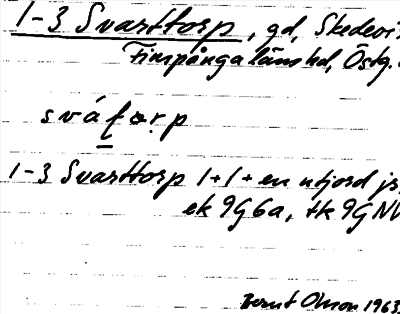 1-3 Svarttorp, gd, Skedevi
Finspånga läns hd, Östg.
sváforp
1-3 Svarttorp 1+1+en utjord js,
ek 9G6a, tk 9G NV
Bernt Olson 1963